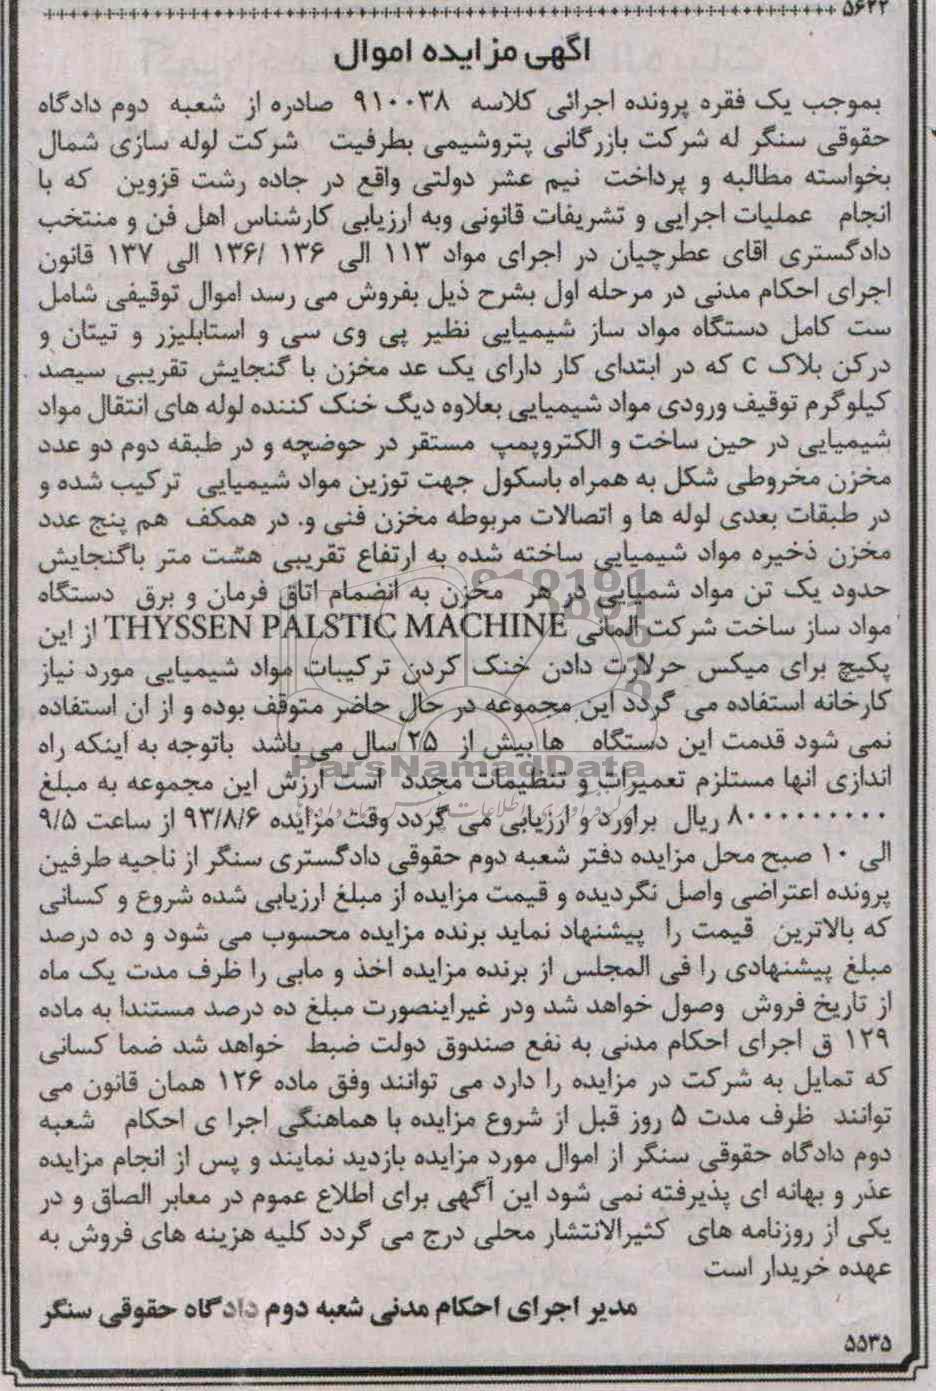 ۵۶۲۲
آگهی مزایده اموال
بموجب یک فقره پرونده اجرائی کلاسه ۹۱۰۰۳۸ صادره از شعبه دوم دادگاه
حقوقی سنگر له شرکت بازرگانی پتروشیمی بطرفیت شرکت لوله سازی شمال
بخواسته مطالبه و پرداخت نیم عشر دولتی واقع در جاده رشت قزوین که با
انجام عملیات اجرایی و تشریفات قانونی وبه ارزیابی کارشناس اهل فن و منتخب
دادگستری اقای عطرچیان در اجرای مواد ۱۱۳ الی ۱۳۶ /۱۳۶ الی ۱۳۷ قانون
اجرای احکام مدنی در مرحله اول بشرح ذیل بفروش می رسد اموال توقیفی شامل
ست کامل دستگاه مواد ساز شیمیایی نظیر پی وی سی و استابلیزر و تیتان و
درکن بلاک C که در ابتدای کار دارای یک عد مخزن با گنجایش تقریبی سیصد
کیلوگرم توقیف ورودی مواد شیمیایی بعلاوه دیگ خنک کننده لوله های انتقال مواد
شیمیایی در حین ساخت و الکتروپمپ مستقر در حوضچه و در طبقه دوم دو عدد
مخزن مخروطی شکل به همراه باسکول جهت توزین مواد شیمیایی ترکیب شده و
در طبقات بعدی لوله ها و اتصالات مربوطه مخزن فنی و. در همکف هم پنج عدد
مخزن ذخیره مواد شیمیایی ساخته شده به ارتفاع تقریبی هشت متر باگنجایش
حدود یک تن مواد شمیایی در هر مخزن به انضمام اتاق فرمان و برق دستگاه
مواد ساز ساخت شرکت المانی THYSSEN PALSTIC MACHINE از این
پکیچ برای میکس حرلارت دادن خنک کردن ترکیبات مواد شیمیایی مورد نیاز
کارخانه استفاده می گردد این مجموعه در حال حاضر متوقف بوده و از ان استفاده
نمی شود قدمت این دستگاه ها بیش از ۲۵ سال می باشد باتوجه به اینکه راه
ParsNamadData
اندازی انها مستلزم تعمیرات و تنظیمات مجدد است ارزش این مجموعه به مبلغ
۸۰۰۰۰۰۰۰۰۰ ریال براورد و ارزیابی می گردد وقت مزایده ۹۳/۸/۶ از ساعت ۹/۵
الی ۱۰ صبح محل مزایده دفتر شعبه دوم حقوقی دادگستری سنگر از ناحیه طرفین
پرونده اعتراضی واصل نگردیده و قیمت مزایده از مبلغ ارزیابی شده شروع و کسانی
که بالاترین قیمت را پیشنهاد نماید برنده مزایده محسوب می شود و ده درصد
مبلغ پیشنهادی را فی المجلس از برنده مزایده اخذ و مابی را ظرف مدت یک ماه
از تاریخ فروش وصول خواهد شد ودر غیراینصورت مبلغ ده درصد مستندا به ماده
۱۲۹ ق اجرای احکام مدنی به نفع صندوق دولت ضبط خواهد شد ضما کسانی
که تمایل به شرکت در مزایده را دارد می توانند وفق ماده ۱۲۶ همان قانون می
توانند ظرف مدت ۵ روز قبل از شروع مزایده با هماهنگی اجرا ی احکام شعبه
دوم دادگاه حقوقی سنگر از اموال مورد مزایده بازدید نمایند و پس از انجام مزایده
عذر و بهانه ای پذیرفته نمی شود این آگهی برای اطلاع عموم در معابر الصاق و در
یکی از روزنامه های کثیرالانتشار محلی درج می گردد کلیه هزینه های فروش به
عهده خریدار است
مدیر اجرای احکام مدنی شعبه دوم دادگاه حقوقی سنگر
۵۵۳۵